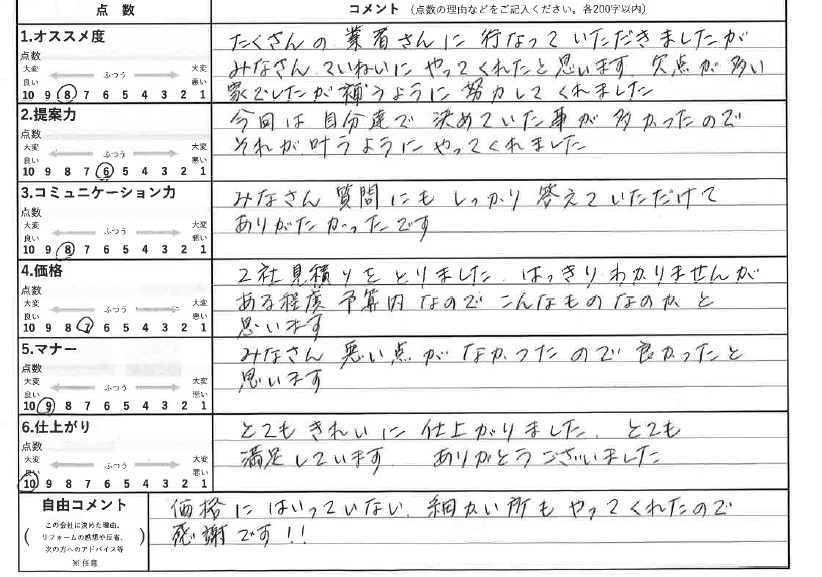 点 数
コメント (点数の理由などをご記入ください。各200字以内)
1.オススメ度
点数
大変 良い
ふつう
大変 悪い
10 9 8 7 6 5 4 3 2 1
たくさんの 業者さんに 行なって いただきましたが
みなさん ていねいに やってくれたと思います 欠点が 多い
家でしたが 補うように 努力してくれました
2.提案力
点数
大変 良い
ふつう
大変 悪い
10 9 8 7 6 5 4 3 2 1
今回は 自分達で 決めていた事が 多かったので
それが 叶うように やってくれました
3.コミュニケーション力
点数
大変 良い
ふつう
大変 悪い
10 9 8 7 6 5 4 3 2 1
みなさん 質問にも しっかり 答えていただけて
ありがたかったです
4.価格
点数
大変 良い
ふつう
大変 悪い
10 9 8 7 6 5 4 3 2 1
2社見積りをとりました. はっきりわかりませんが
ある程度 予算内 なので こんなものなのかと
思います
5.マナー
点数
大変 良い
ふつう
大変 悪い
10 9 8 7 6 5 4 3 2 1
みなさん 悪い点が なかったので 良かったと
思います
6.仕上がり
点数
大変 良い
ふつう
大変 悪い
10 9 8 7 6 5 4 3 2 1
とても きれいに 仕上がりました. とても
満足しています. ありがとうございました
自由コメント
(この会社に決めた理由、
リフォームの感想や反省、
次の方へのアドバイス等
※任意)
価格に はいっていない. 細かい所も やってくれたので
感謝です!!